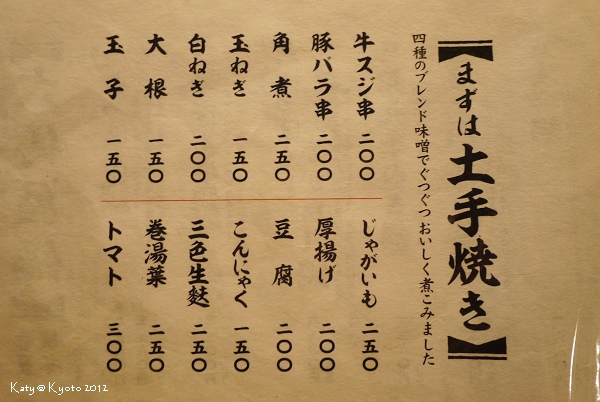 【まずは土手焼き】
四種のブレンド味噌でぐつぐつおいしく煮こみました
牛スジ串 二〇〇
豚バラ串 二〇〇
角煮 二五〇
玉ねぎ 一五〇
白ねぎ 二〇〇
大根 一五〇
玉子 一五〇
じゃがいも 二五〇
厚揚げ 二〇〇
豆腐 二〇〇
こんにゃく 一五〇
三色生麩 二五〇
巻湯葉 二五〇
トマト 三〇〇
Katy@Kyoto 2012